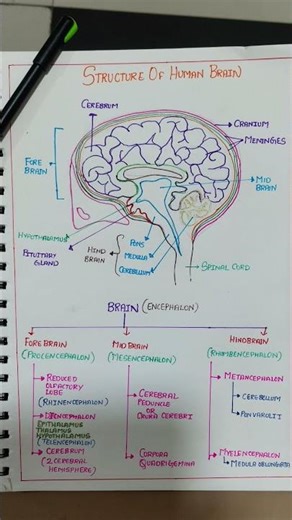 STRUCTURE OF HUMAN BRAIN
CEREBRUM
CRANIUM
MENINGES
FORE
BRAIN
MID
BRAIN
HYPOTHALAMUS
PITUITARY
GLAND
HIND
BRAIN
PONS
MEDULLA
CEREBELLUM
SPINAL CORD
BRAIN (ENCEPHALON)
FOREBRAIN
(PROCENCEPHALON)
MID BRAIN
(MESENCEPHALON)
HINDBRAIN
(RHOMBENCEPHALON)
REDUCED
OLFACTORY
LOBE
(RHINENCEPHALON)
EPITHALAMUS
THALAMUS
HYPOTHALAMUS
(TELENCEPHALON)
CEREBRUM
(2 CEREBRAL
HEMISPHERE)
CEREBRAL
PEDUNCLE
OR
CEREBRI
CORPORA
QUADRIGEMINA
METANCEPHALON
CEREBELLUM
PON VAROLII
MYELENCEPHALON
MEDULA OBLONGATA